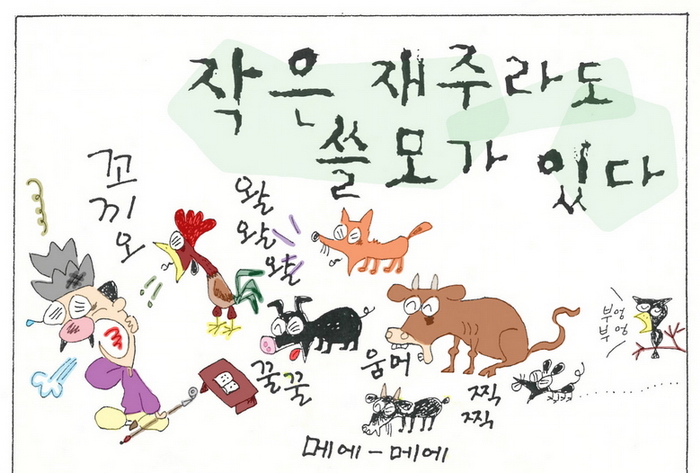 작은 재주라도
쓸모가 있다
꼬
끼
오
왈
왈
왈
부엉
부엉
움머
꿀
꿀
찍
찍
메에-메에